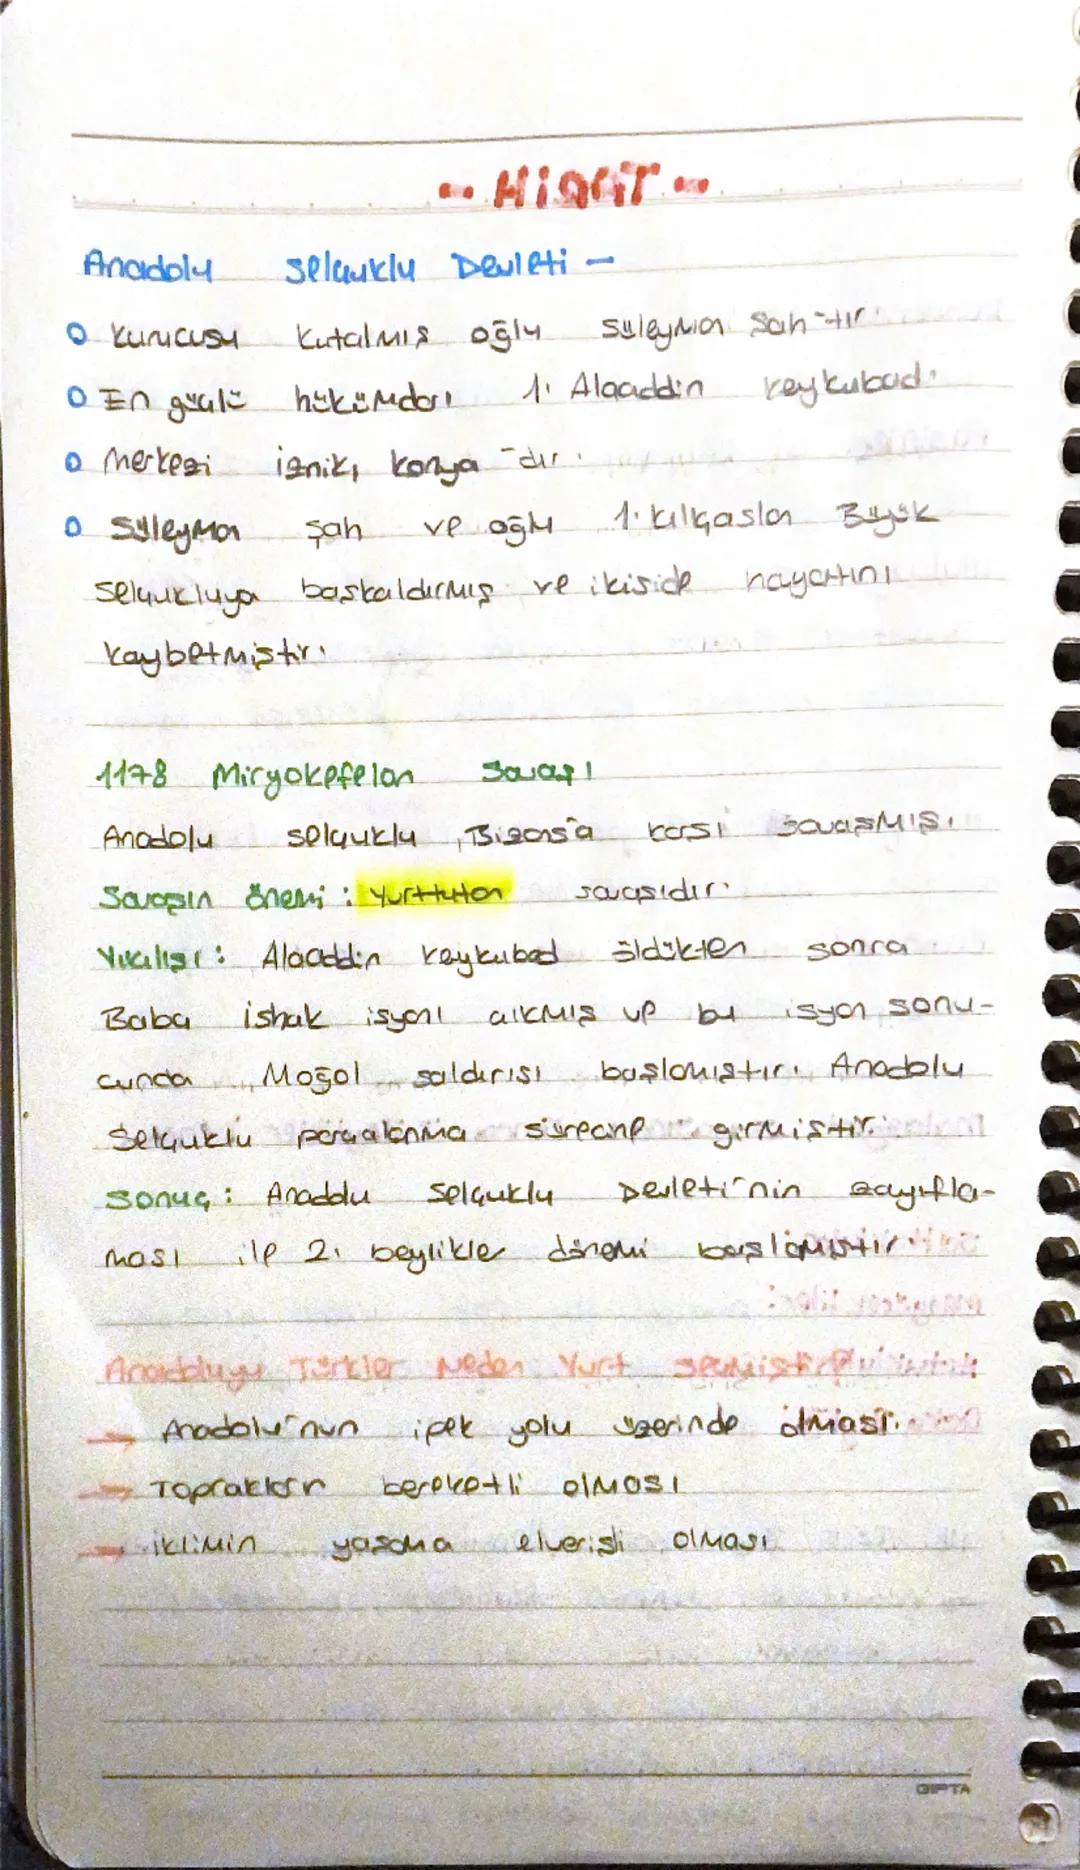 Anadolu Selçuklu Devleti -
Kurucusu Kutalmış oğlu Süleyman Şah-tır.
En güçlü hükümdarı 1. Alaaddin Keykubad.
Merkezi iznik, Konya-dır.
Süleyman Şah ve oğlu 1. Kılıçaslan Büyük
Selçukluya başkaldırmış ve ikiside hayatını
kaybetmiştir.
1178 Miryokefelon Savaşı
Anadolu Selçuklu, Bizans'a karşı savaşmış.
Savaşın önemi: Yurttutan savaşıdır.
Yıkılışı: Alaaddin Keykubad öldükten sonra
Baba ishak isyanı çıkmış ve bu isyan sonu-
cunda Moğol saldırısı başlamıştır. Anadolu
Selçuklu parçalanma sürecine girmiştir.
Sonuç: Anadolu Selçuklu Devleti'nin zayıfla-
ması ile 2. beylikler dönemi başlamıştır.
Anadoluyu Türkler Neden Yurt
Anadolu'nun ipek yolu üzerinde olması.
Toprakların bereketli olması
iklimin yaşama elverişli olması
GIPTA